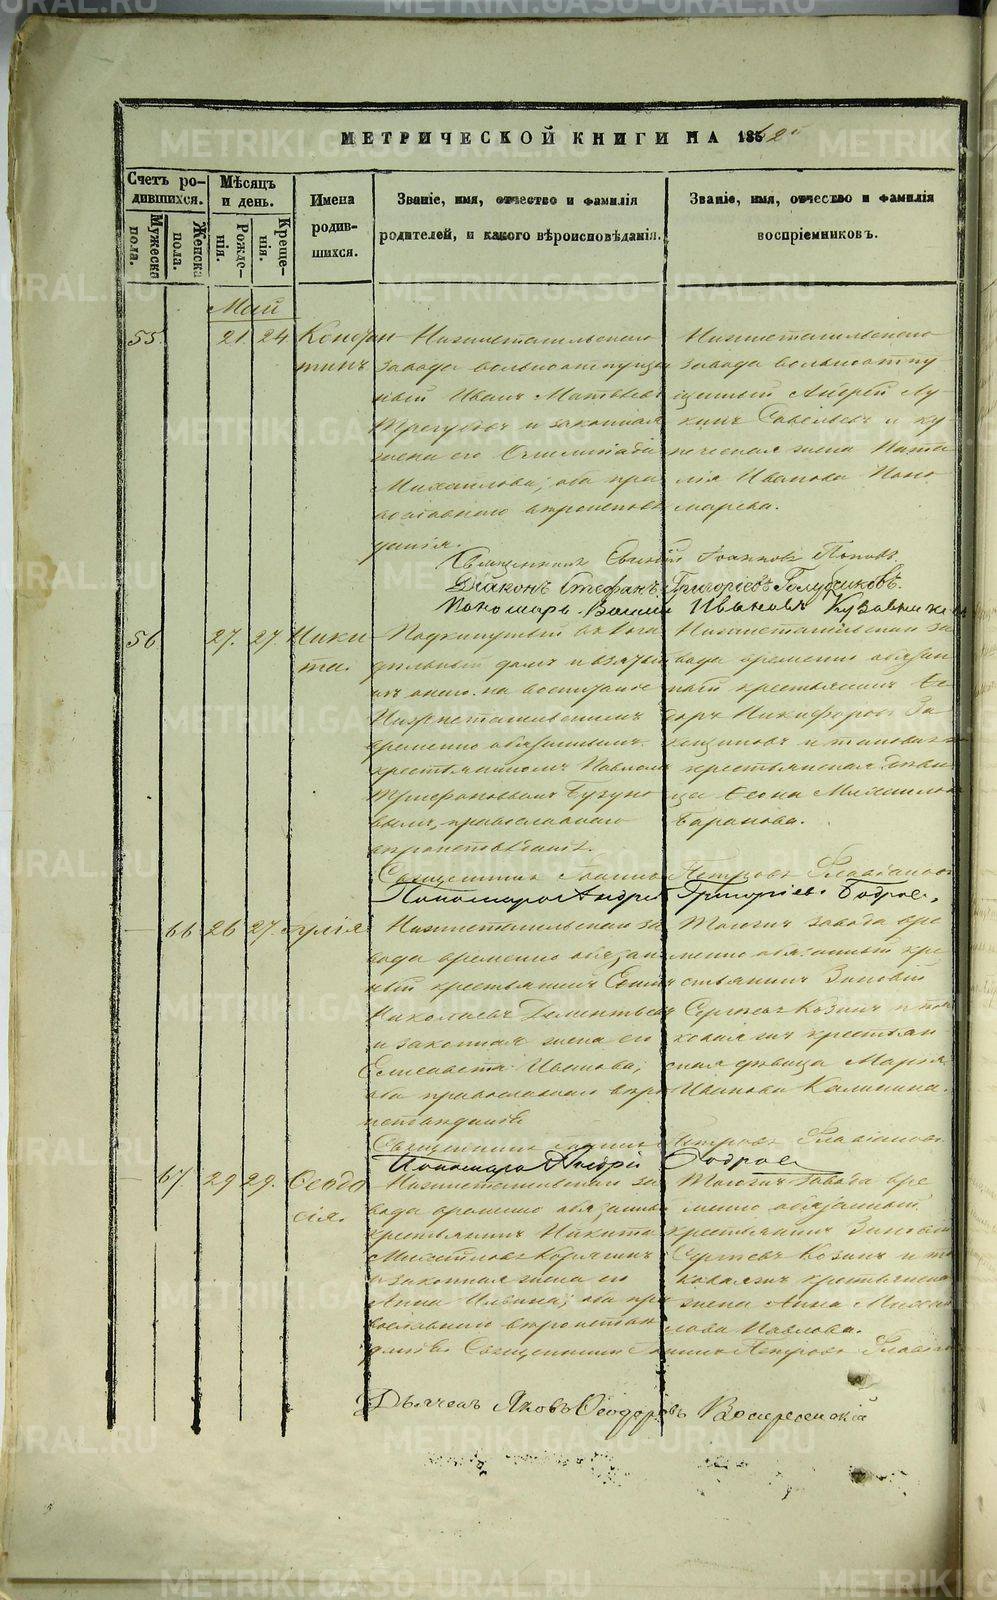 МЕТРИЧЕСКОЙ КНИГИ НА 1862
Счетъ родившихся.
Мужеска пола.
Женска пола.
Мѣсяцъ и день.
Рожденія.
Крещенія.
Имена родившихся.
Званіе, имя, отчество и фамилія родителей, и какого вѣроисповѣданія.
Званіе, имя, отчество и фамилія воспріемниковъ.
Май
55. 21. 24. Констан
тинъ
Нижнетагильскаго
завода вольноотпуще
ный Иванъ Матвѣевъ
Трегубовъ и законная
жена его
Михаилова; оба пра
вославнаго вѣроисповѣ
данія.
Нижнетагильскаго
завода вольноотпу
щенный Андрей Лу
кинъ Савельевъ и ку
печеская жена Ната
лія Иванова Поно
марева.
Священникъ Евгеній Іоанновъ Поповъ
Діаконъ Стефанъ Григорьевъ Голубчиковъ
Пономарь Василій Ивановъ
56 27. 27. Ники
та.
Подкинутый въ Бога
дѣльный домъ и взятый
изъ онаго на воспитаніе
Нижнетагильскимъ
временно обязаннымъ
крестьяниномъ Павломъ
Трифоновымъ
вымъ, православнаго
вѣроисповѣданія.
Нижнетагильскаго за
вода временно обязан
ный крестьянинъ Ѳе
доръ Никифоровъ За
и таковаго же
крестьянская дѣви
ца Михаилова
Баранова.
Священникъ Іоаннъ Петровъ
Пономарь Андрей Григорьевъ Бобровъ
66 26 27. Юлія
Нижнетагильскаго за
вода временно обязан
ный крестьянинъ
Николаевъ Дементьевъ
и законная жена его
Елисавета Иванова;
оба православнаго вѣро
исповѣданія
Тогожъ завода вре
менно обязанный кре
стьянинъ Зиновій
Сергѣевъ Козинъ и та
коваго же крестьян
ская дѣвица Марія
Иванова Калинина.
Священникъ Іоаннъ Петровъ
Пономарь Андрей Бобровъ
67 29 29. Ѳеодо
сія.
Нижнетагильскаго за
вода временно обязанный
крестьянинъ Никита
Михайловъ
и законная жена его
Анна Ильина; оба пра
вославнаго вѣроисповѣ
данія
Тогожъ завода вре
менно обязанный
крестьянинъ Зиновій
Сергѣевъ Козинъ и та
коваго же крестьянска
жена Анна Михаи
лова Павлова.
Священникъ Іоаннъ Петровъ
Дьячекъ Яковъ Ѳеодоровъ Воскресенскій
METRIKI.GASO-URAL.RU